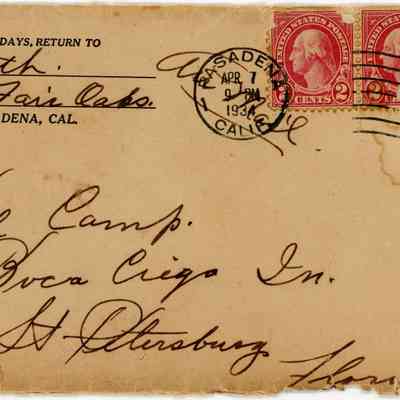 DAYS, RETURN TO
th.
Fair Oaks.
DENA, CAL.
PASADENA
APR 7
9 PM
1934
CALIF.
UNITED STATES POSTAGE
CENTS 2
2
Camp.
Boca Ciega In.
St Petersburg
Flor